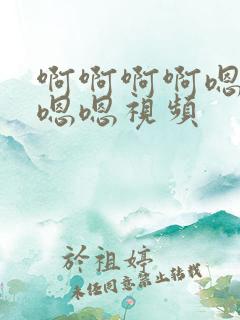 啊啊啊啊嗯
嗯嗯視頻
於祖婷
未经同意禁止转载